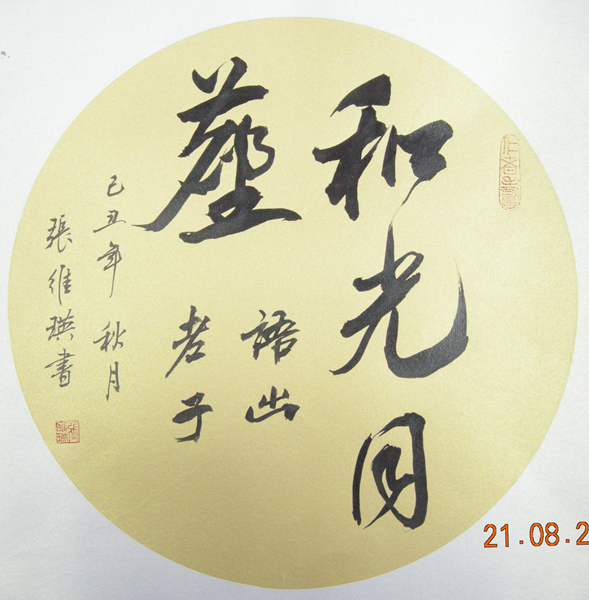 和光同
塵
語出
老子
己丑年 秋月
張維瑛書
21.08.2